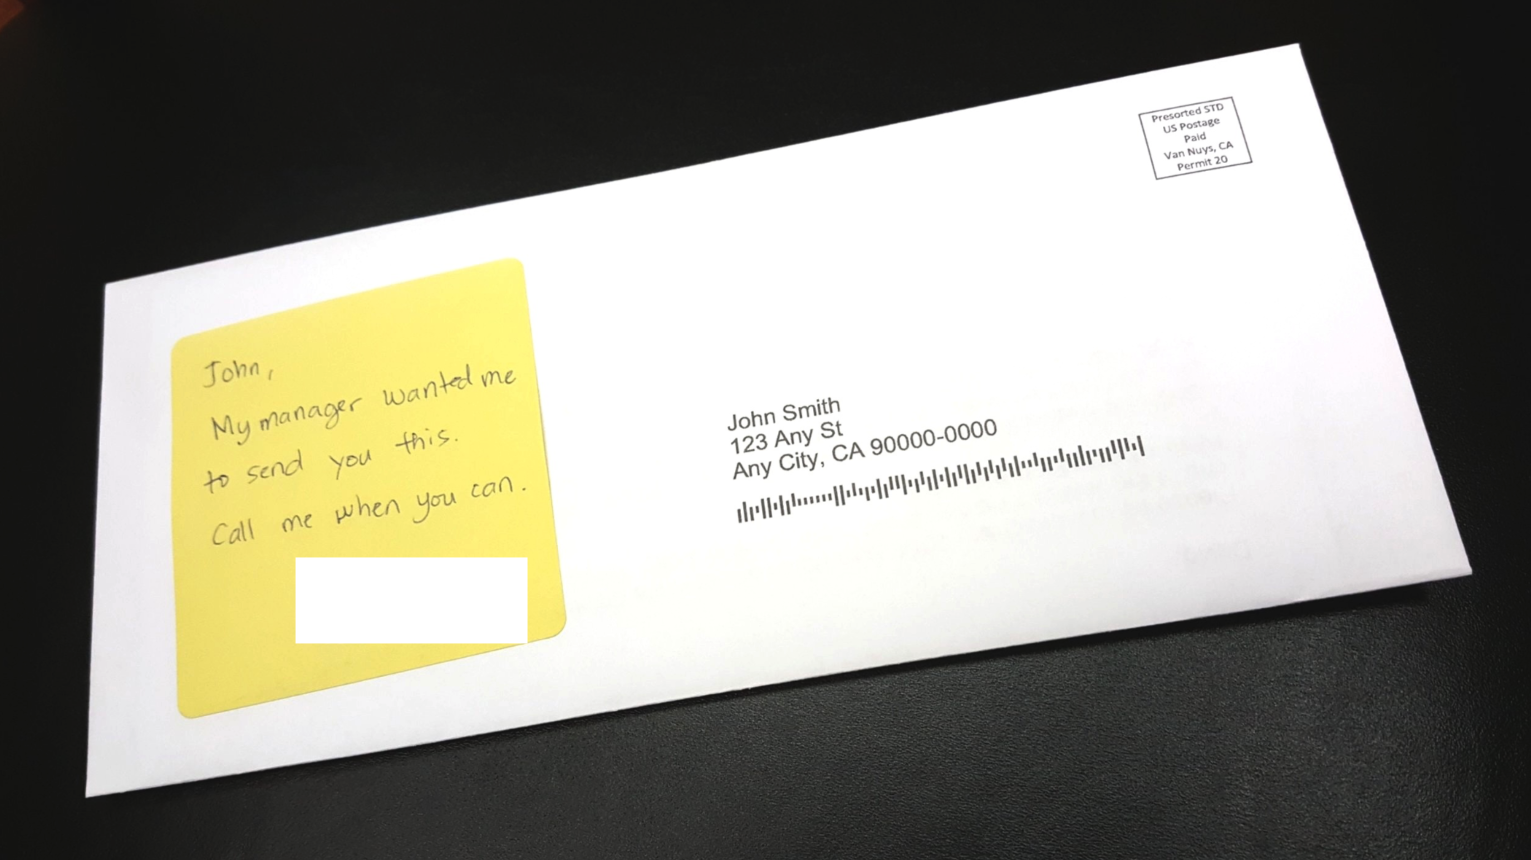 Presorted STD
US Postage
Paid
Van Nuys, CA
Permit 20
John,
My manager wanted me
to send you this.
Call me when you can.
John Smith
123 Any St
Any City, CA 90000-0000